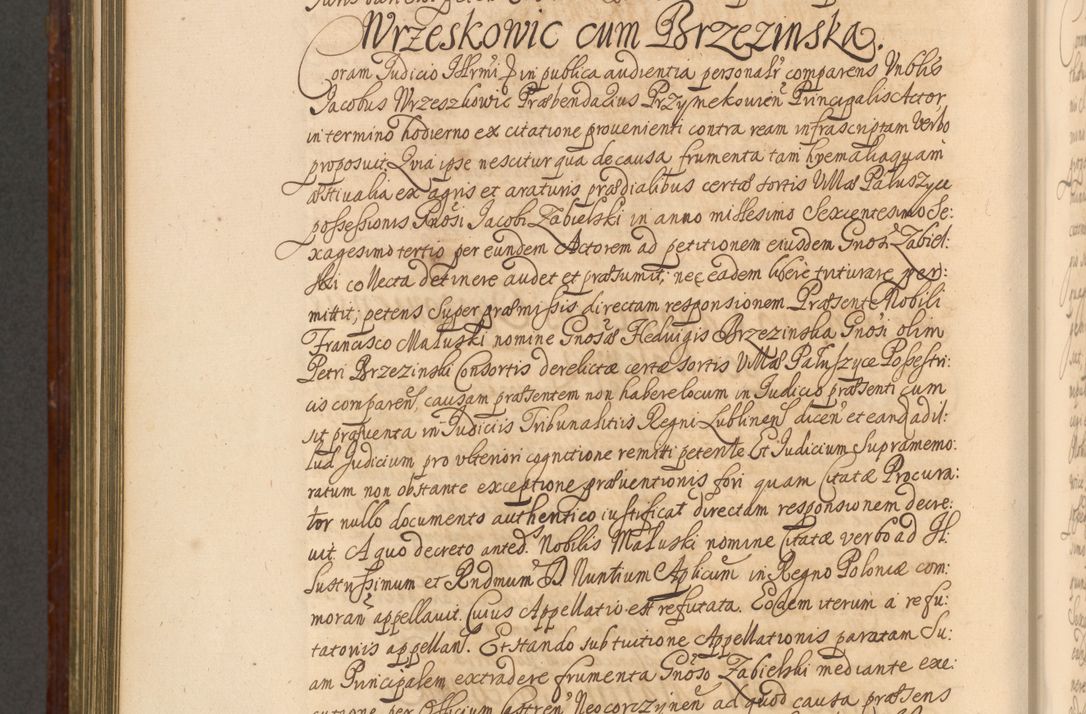 Wrzeskowic cum Brzezinska.
Coram Judicio Illrmi D in publica audientia personalr comparens Vnblis
Jacobus Wrzeszkowic Præbendarius Przymekovien Principalis Actor
in termino hodierno ex citatione provenienti contra ream infrascriptam Verbo
proposuit, Quia ipse nescitur qua de causa frumenta tam hyemalia quam
æstivalia ex agris et araturis prædialibus certæ sortis Villæ Paluszyce
possessionis Gnosi Jacobi Zabielski in anno millesimo Sexcentesimo Se:
xagesimo tertio per eundem Actorem ad petitionem eiusdem Gnosi Zabiel:
ski collecta detinere audet et præsumit, nec eadem libere triturare per:
mittit; petens super præmissis directam responsionem. Præsente Nobili
Francisco Maluski nomine Gnosæ Hedvigis Brzezinska Gnosi olim
Petri Brzezinski Consortis derelictæ certæ sortis Villæ Paluszyce Possestri:
cis comparen, causam præsentem non habere locum in Judicio præsenti cum
sit præventa in Judiciis Tribunalitiis Regni Lublinen dicen et eand ad il:
lud Judicium pro vlteriori cognitione remitti petente Et Judicium Supramemo:
ratum non obstante exceptione præventionis fori quam Citatæ Procura:
tor nullo documento authentico iustificat directam responsionem decre:
vit A quo decreto anted. Nobilis Maluski nomine Citatæ verbo ad Il:
lustrissimum et Rndmum D Nuntium Aplicum in Regno Poloniæ com:
moran appellavit. Cuius Appellatio est refutata. Eodem iterum a refu:
tatoriis appellan. Et stando sub tuitione Appellationis paratam Su:
am Principalem extradere frumenta Gnoso Zabielski mediante exe:
cutione per Officium Castren Neocorczynen ad quod causa præsens